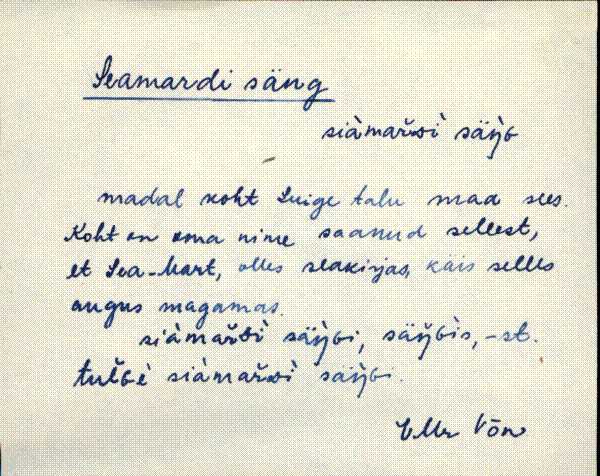 Seamardi säng
siàmařdì säŋ̀ɢ
madal koht Luige talu maa sees.
Koht on oma nime saanud sellest,
et Sea-Mart, olles seakirjas, käis selles
augus magamas.
siàmařdì säŋ̀ɢi, säŋ̀ɢis, -st.
siàmařdì säŋ̀ɢi.